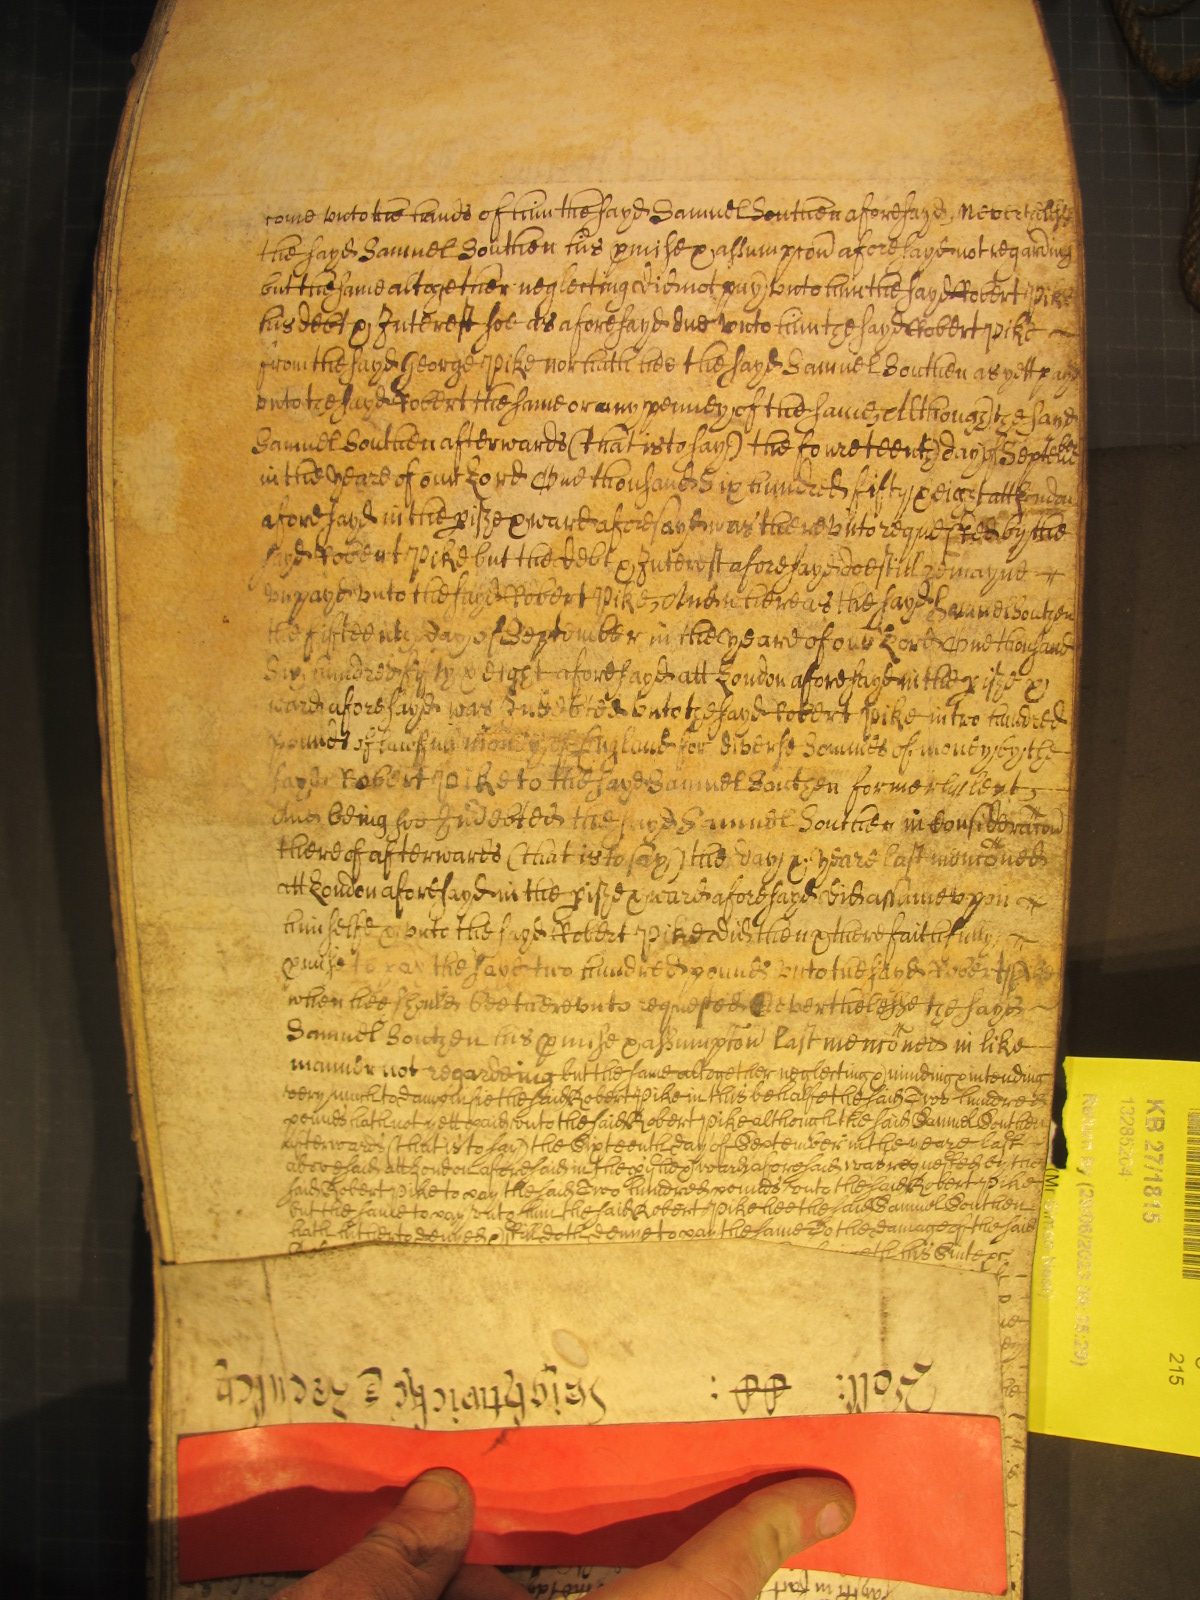 come unto the hands of him the sayd Samuel Southen aforesayd, Neverthelesse
the sayd Samuel Southen his pmise & assumpton aforesayd not regarding
but the same altogether neglecting did not pay unto him the sayd Robert Pike
his debt & Interest soe as aforesayd due unto him the sayd Robert Pike
from the sayd George Pike nor hath hee the sayd Samuel Southen as yett payd
unto the sayd Robert the same or any penney of the same, Although the sayd
Samuel Southen afterwards (that is to say) the foureteenth day of September
in the yeare of our Lord One thousand Six hundred fifty & eight att London
aforesayd in the pishe & ward aforesayd was thereunto requested by the
sayd Robert Pike but the debt & Interest aforesayd doe still remayne
unpayd unto the sayd Robert Pike, And whereas the sayd Samuel Southen
the fifteenth day of September in the yeare of our Lord One thousand
Six hundred fifty & eight aforesayd att London aforesayd in the pishe &
ward aforesayd was Indebted unto the sayd Robert Pike in two hundred
pounds of lawfull money of England for diverse sommes of money by the
sayd Robert Pike to the sayd Samuel Southen formerly lent,
And being soe Indebted the sayd Samuel Southen in consideraton
thereof afterwards (that is to say) the day & yeare last menconed
att London aforesayd in the pishe & ward aforesayd did assume upon
himselfe & unto the sayd Robert Pike did then & there faithfully
pmise to pay the sayd two hundred pounds unto the sayd Robert Pike
when hee should bee thereunto requested Neverthelesse the sayd
Samuel Southen his pmise & assumpton last menconed in like
manner not regardeing but the same altogether neglecting & minding & intending
very much to dampnifie the said Robert Pike in this behalfe the said Two hundred
pounds hath not yett paid unto the said Robert Pike although the said Samuel Southen
afterwards (that is to say) the Sixteenth day of September in the yeare last
abovesaid att London aforesaid in the pishe & ward aforesaid was requested by the
said Robert Pike to pay the said Two hundred pounds unto the said Robert Pike
but the same to pay unto him the said Robert Pike hee the said Samuel Southen
hath hitherto denyed & still doth denye to pay the same To the damage of the said
his Suite &c
Roll:
KB 27/1815
13285204
215